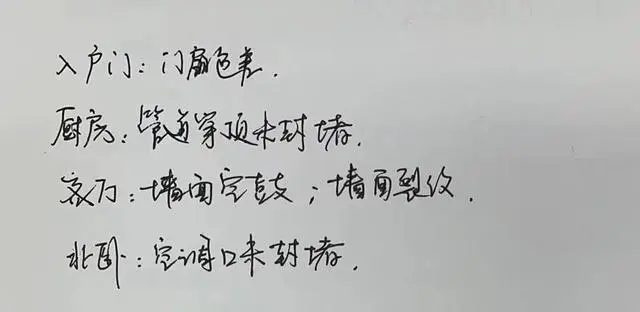 入户门：门扇色差.
厨房：管道穿顶未封堵.
客厅：墙面空鼓；墙面裂纹.
北卧：空调口未封堵.